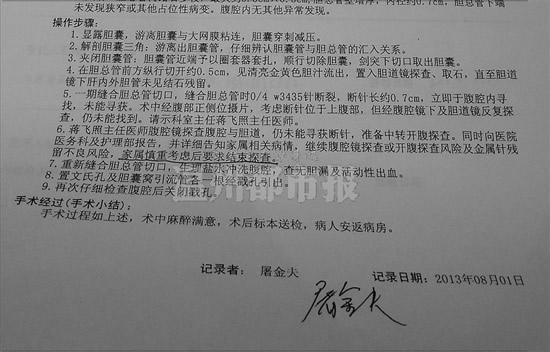 未发现狭窄或其他占位性病变。腹腔内无其他异常发现。
操作步骤：
1.显露胆囊，游离胆囊与大网膜粘连，胆囊穿刺减压。
2.解剖胆囊三角：游离出胆囊管，仔细辨认胆囊管与胆总管的汇入关系。
3.夹闭胆囊管：胆囊管近端予以圈套器套扎，顺行切除胆囊，剑突下切口取出胆囊。
4.在胆总管前方纵行切开约0.5cm，见清亮金黄色胆汁流出，置入胆道镜探查、取石，直至胆道
镜下肝内外胆管未见结石残留。
5.一期缝合胆总管切口，缝合胆总管时0/4 w3435针断裂，断针长约0.7cm，立即于腹腔内寻
找，未能寻获。术中经腹部正侧位摄片，考虑断针位于上腹部，但经腹腔镜下及胆道镜反复探
查，仍未能找到。请示科室主任蒋飞照主任医师。
6.蒋飞照主任医师腹腔镜探查腹腔与胆道，仍未能寻获断针，准备中转开腹探查。同时向医院
医务科及护理部报告，并详细告知家属相关病情，继续腹腔镜探查或开腹探查风险及金属针残
留不良风险，家属慎重考虑后要求结束探查。
7.重新缝合胆总管切口，生理盐水冲洗腹腔，查无胆漏及活动性出血。
8.置文氏孔及胆囊窝引流管各一根经戳孔引出。
9.再次仔细检查腹腔后关闭戳孔。
温州都市报
手术经过(手术小结)：
手术过程如上述，术中麻醉满意，术后标本送检，病人安返病房。
记录者： 屠金夫 记录日期：2013年08月01日
屠金夫